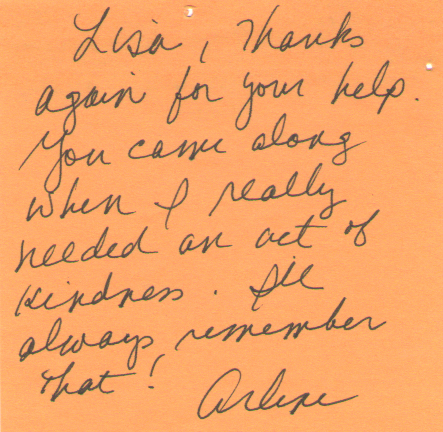 Lisa, Thanks
again for your help.
You came along
when I really
needed an act of
kindness. I'll
always remember
that!
Arlene